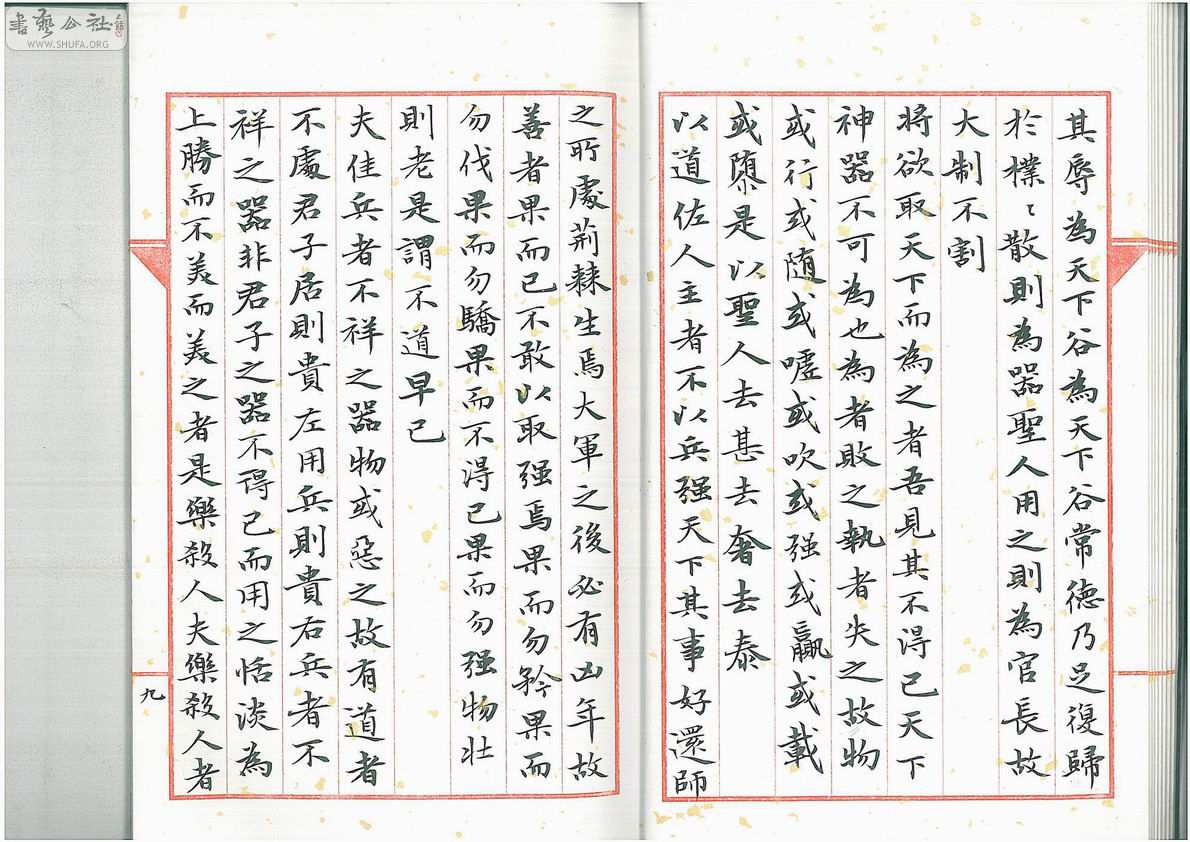 其辱為天下谷為天下谷常德乃足復歸
於樸〻散則為器聖人用之則為官長故
大制不割
将欲取天下而為之者吾見其不得已天下
神器不可為也為者敗之執者失之故物
或行或随或噓或吹或强或羸或載
或隳是以聖人去甚去奢去泰
以道佐人主者不以兵强天下其事好還師
之所處荊棘生焉大軍之後必有凶年故
善者果而已不敢以取强焉果而勿矜果而
勿伐果而勿驕果而不得已果而勿强物壮
則老是謂不道早已
夫佳兵者不祥之器物或惡之故有道者
不處君子居則貴左用兵則貴右兵者不
祥之器非君子之器不得已而用之恬淡為
上勝而不美而美之者是樂殺人夫樂殺人者
九
書藝公社
WWW.SHUFA.ORG